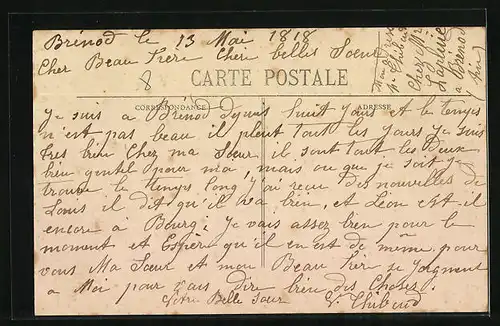 Brénod le 13 Mai 1818
Cher Beau Frère Chère belle Sœur
8
CARTE POSTALE
CORRESPONDANCE
ADRESSE
Je suis a Brénod depuis huit Jours et le temps
n'est pas beau il pleut tout les Jours Je suis
très bien Chez ma Sœur il sont tout les Deux
bien gentil pour moi, mais ou que je soit je
trouve le temps long j'ai reçu des nouvelles de
Louis il dit qu'il va bien, et Léon est il
encore a Bourg, Je vais assez bien pour le
moment et Espère qu'il en est de même pour
vous Ma Sœur et mon Beau Frère Se Joignent
a Moi pour vous dire bien des Choses
Votre Belle Sœur
V. Thibaud
Thibaud
Cher
a Brénod
Ain